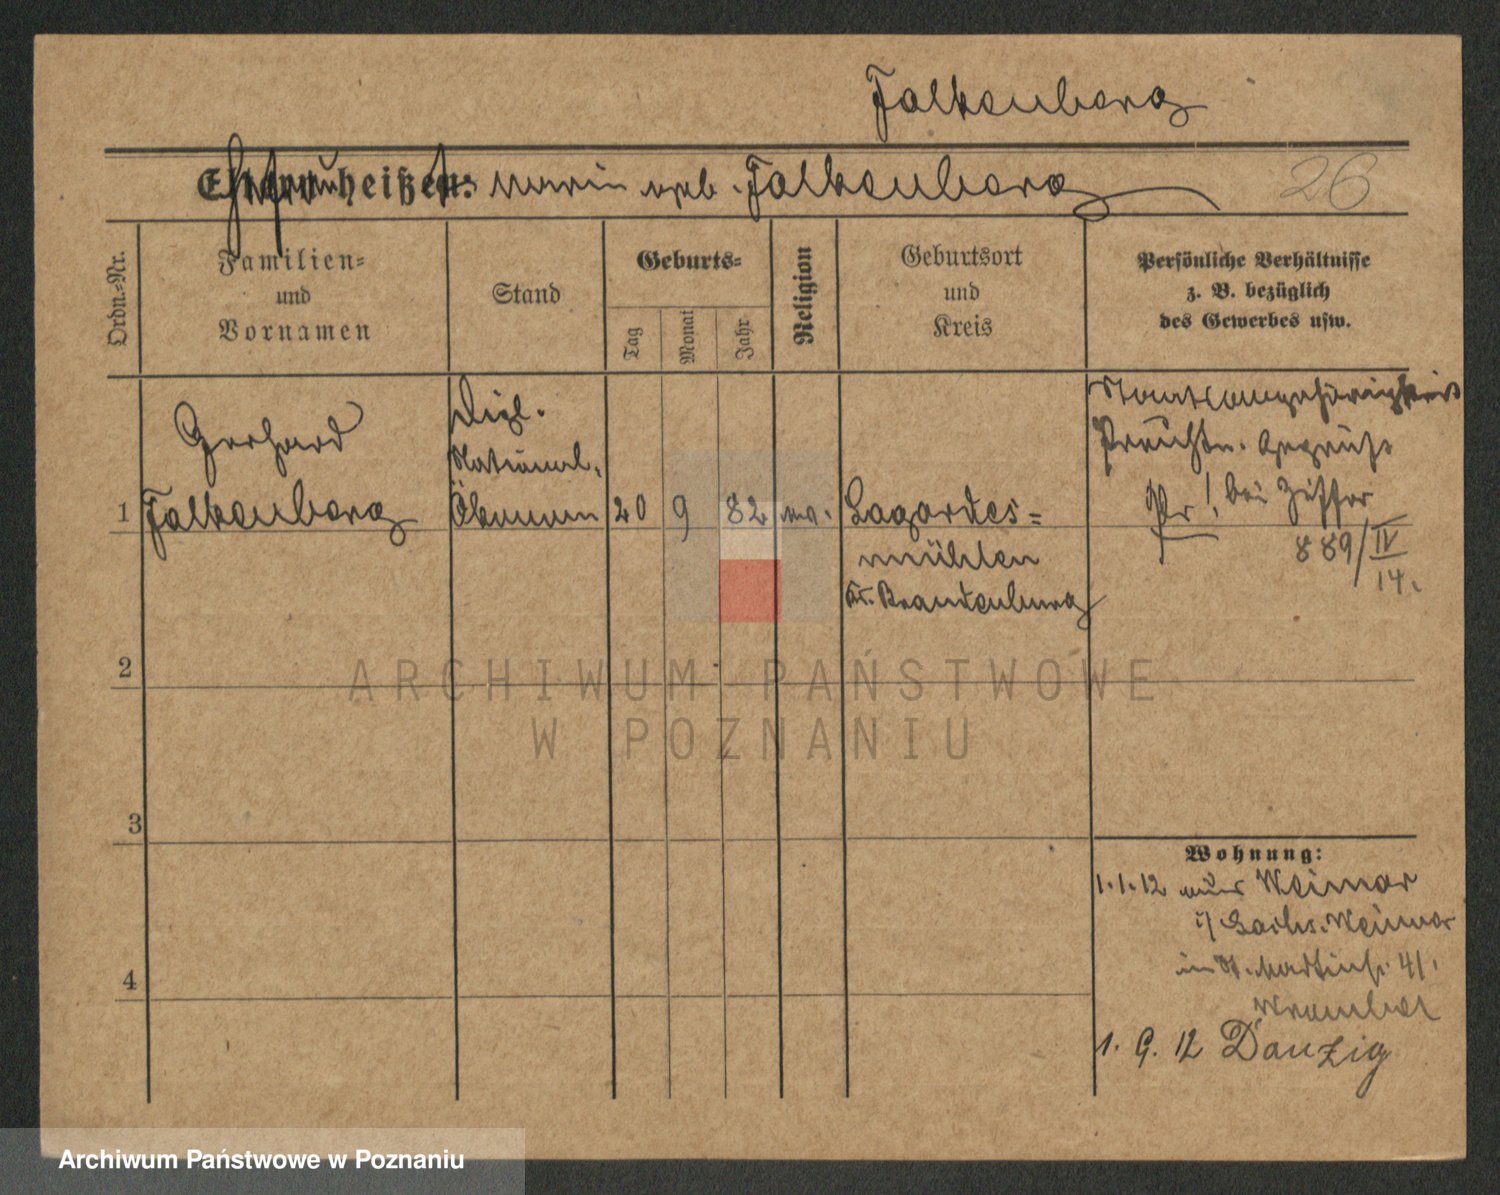 Falkenberg
Ehefrau heißen: geb. Falkenberg
26
Ordn.=Nr.
Familien=
und
Vornamen
Stand
Geburts=
Tag
Monat
Jahr
Religion
Geburtsort
und
Kreis
Persönliche Verhältnisse
z. B. bezüglich
des Gewerbes usw.
1
Gerhard
Falkenberg
Dipl.
National.
Ökonom
20 9 82 ev.
Lagardes=
mühlen
Kr. Brandenburg
Staatsangehörigkeit
Preuße. geprüft
Pr! bei Ziffer
889/IV
14.
2
3
4
Wohnung:
1.1.12 aus Weimar
i/ Sachs. Weimar
in St. Martinstr. 41.
1. 9. 12 Danzig
ARCHIWUM PAŃSTWOWE
W POZNANIU
Archiwum Państwowe w Poznaniu